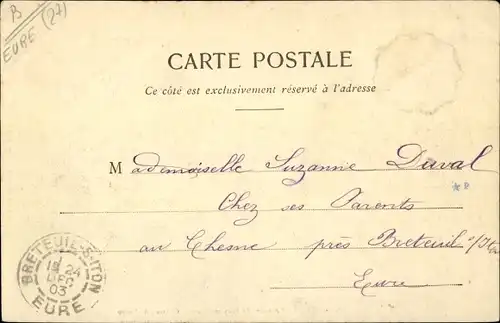 B
EURE (27)
CARTE POSTALE
Ce côté est exclusivement réservé à l'adresse
Mademoiselle Suzanne Duval
Chez ses Parents
au Chesne près Breteuil s/Iton
Eure
BRETEUIL-S-ITON
24
DEC
03
EURE